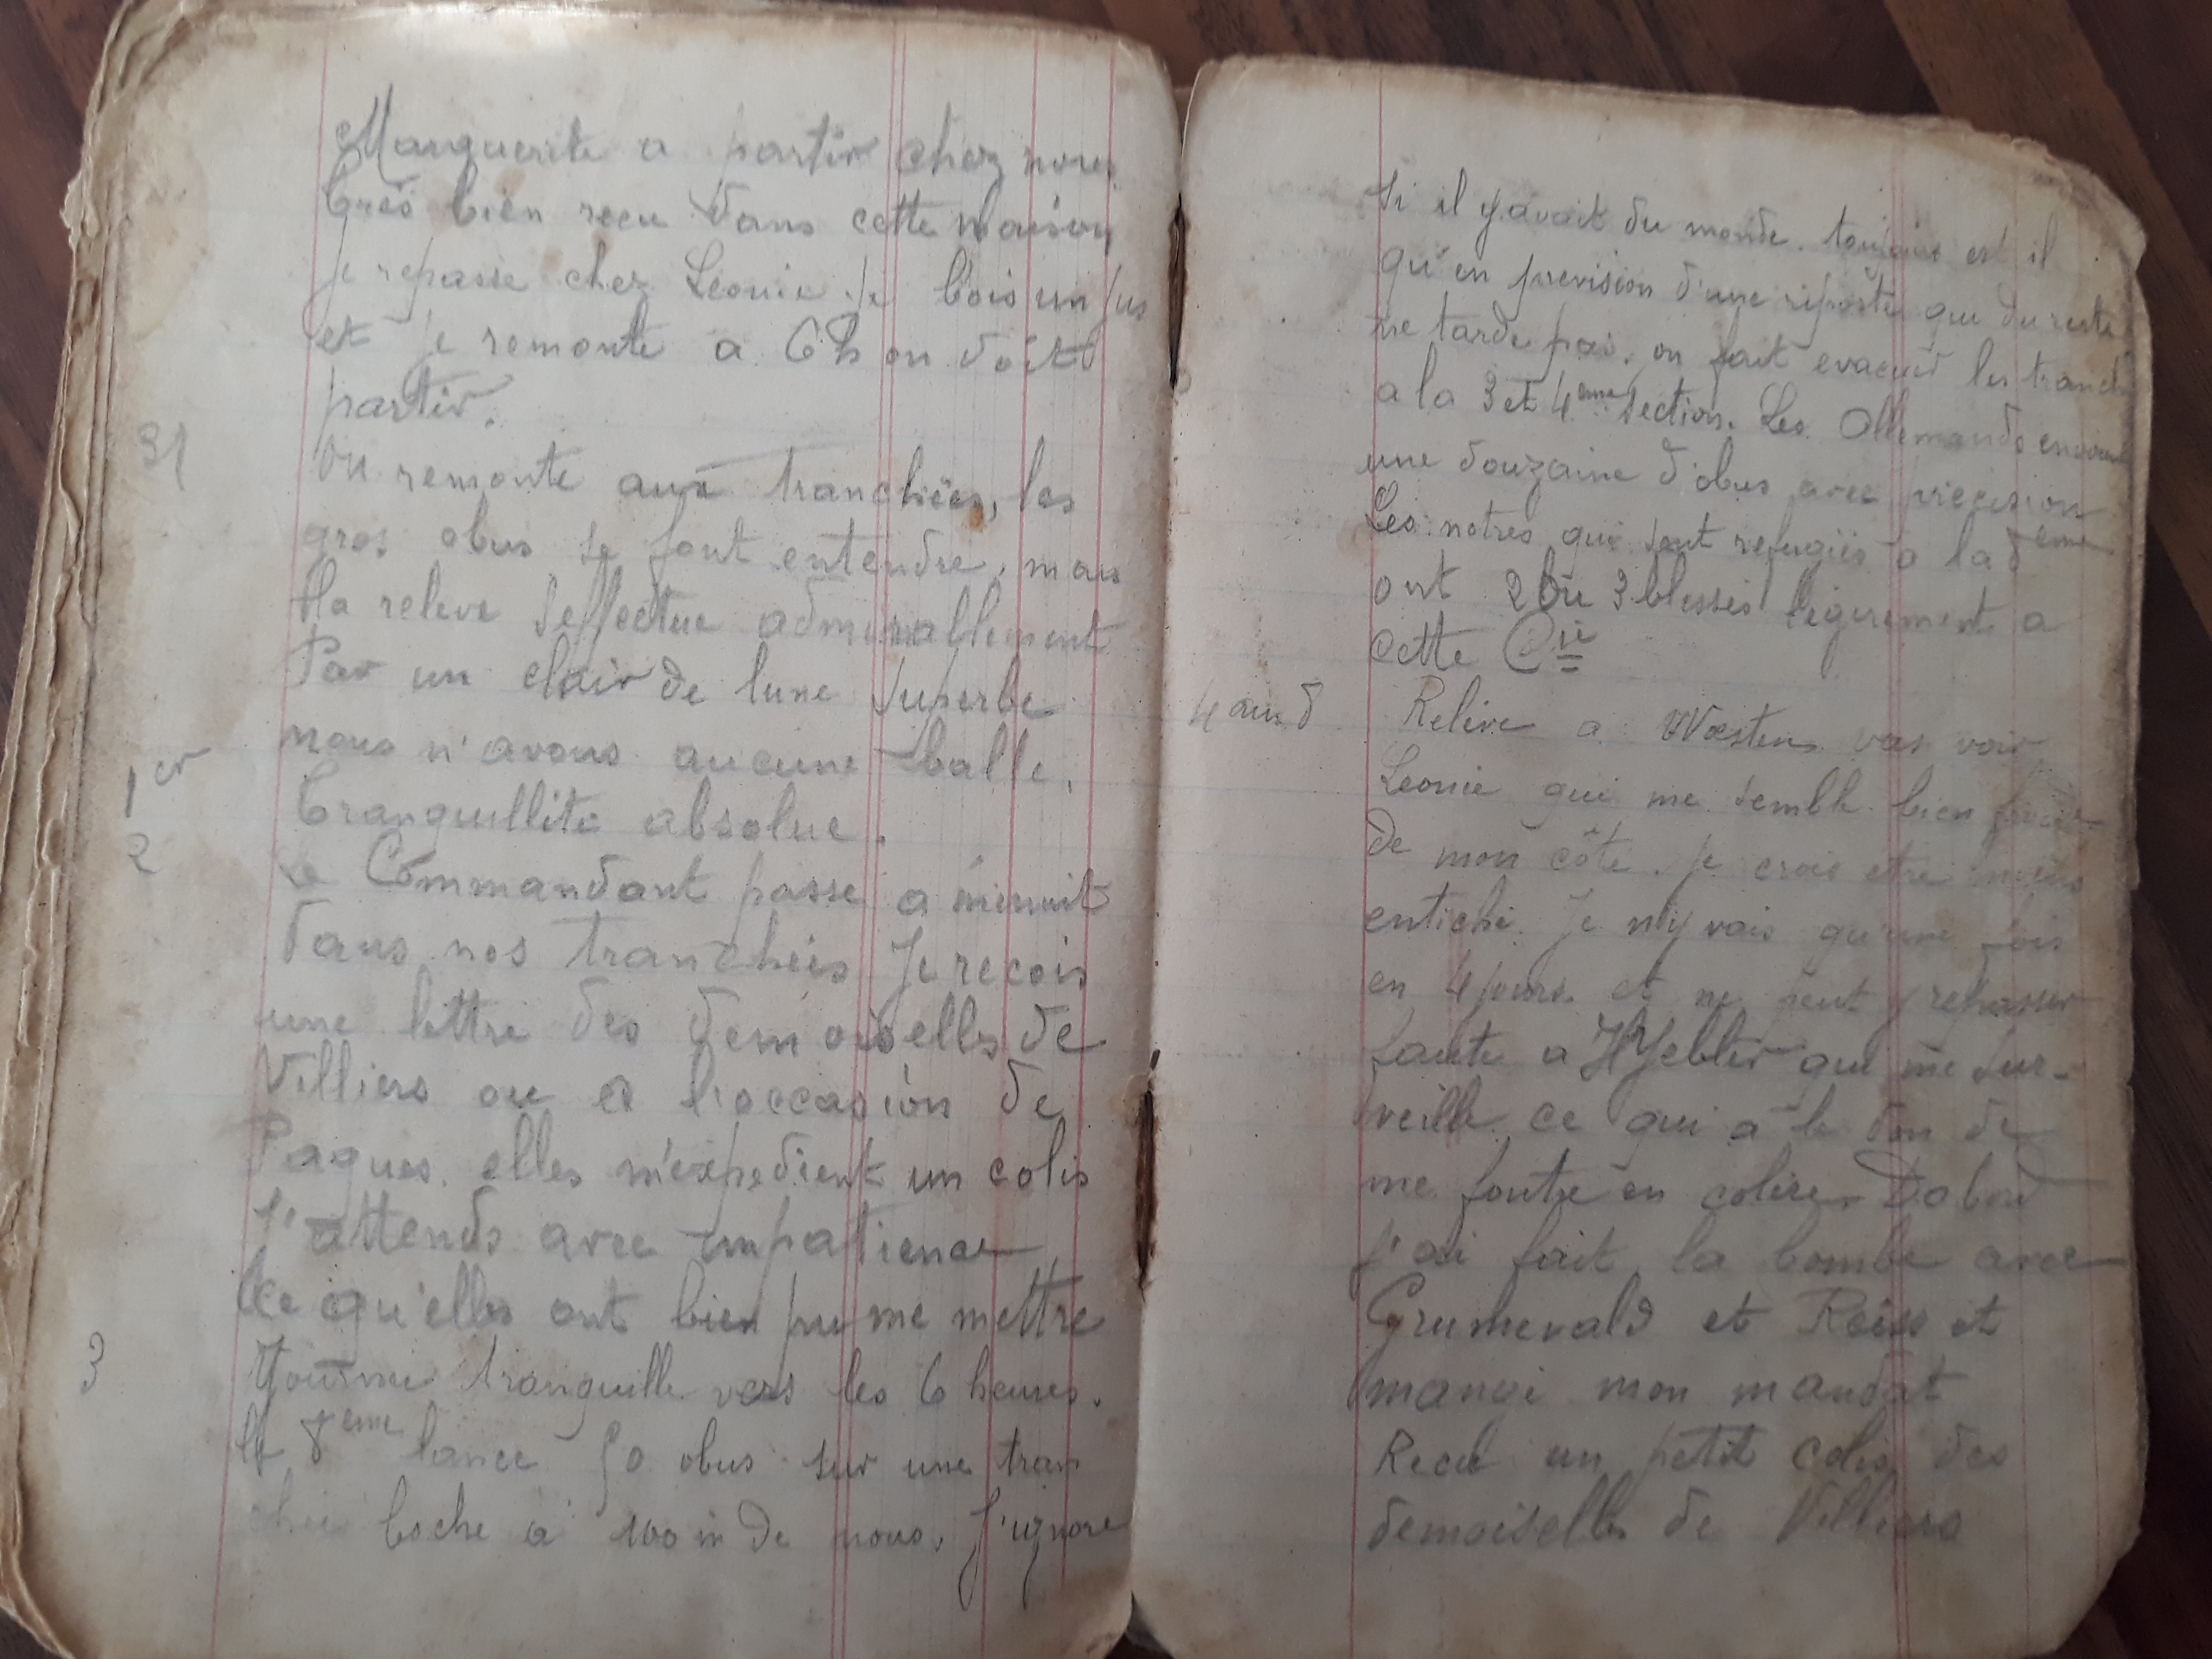 Marguerite a partir chez nous
très bien recu dans cette maison
je repasse chez Leonie je bois un jus
et je remonte a 6h on doit
partir.
31 On remonte aux tranchées, les
gros obus se font entendre, mais
la releve seffectue admirallement
Par un clair de lune superbe
nous n'avons aucune balle.
1er Tranquillité absolue.
2 Le Commandant passe a minuit
dans nos tranchées Je recois
une lettre des demoiselles de
Villiers ou a l'occasion de
Paques. elles m'expedient un colis
J'attends avec impatience
ce qu'elles ont bien pu me mettre
3 Journée tranquille vers les 6 heures.
la 8eme lance 50 obus sur une tran
chée boche a 100 m de nous. J'ignore
Si il y avait du monde. toujours est il
qu'en prevision d'une riposte que du reste
ne tarde pas, on fait evacuer les tranch
a la 3 et 4eme section. Les Allemands envoient
une douzaine d'obus avec precision
Les notres qui sont refugiés a la 8eme
ont 2 ou 3 blessés légerement a
cette Cie
4 au 8 Relève a Woesten vas voir
Leonie qui me semble bien
de mon côté. je crois etre moins
entiché. Je n'y vais qu'une fois
en 4 jours. et ne peut y repasser
faute a qui me sur-
veille ce qui a le don de
me foutre en colère. Dabord
j'ai fait la bombe avec
Grumevald et Reiss et
mangé mon mandat
Recu un petit colis des
demoiselles de Villiers